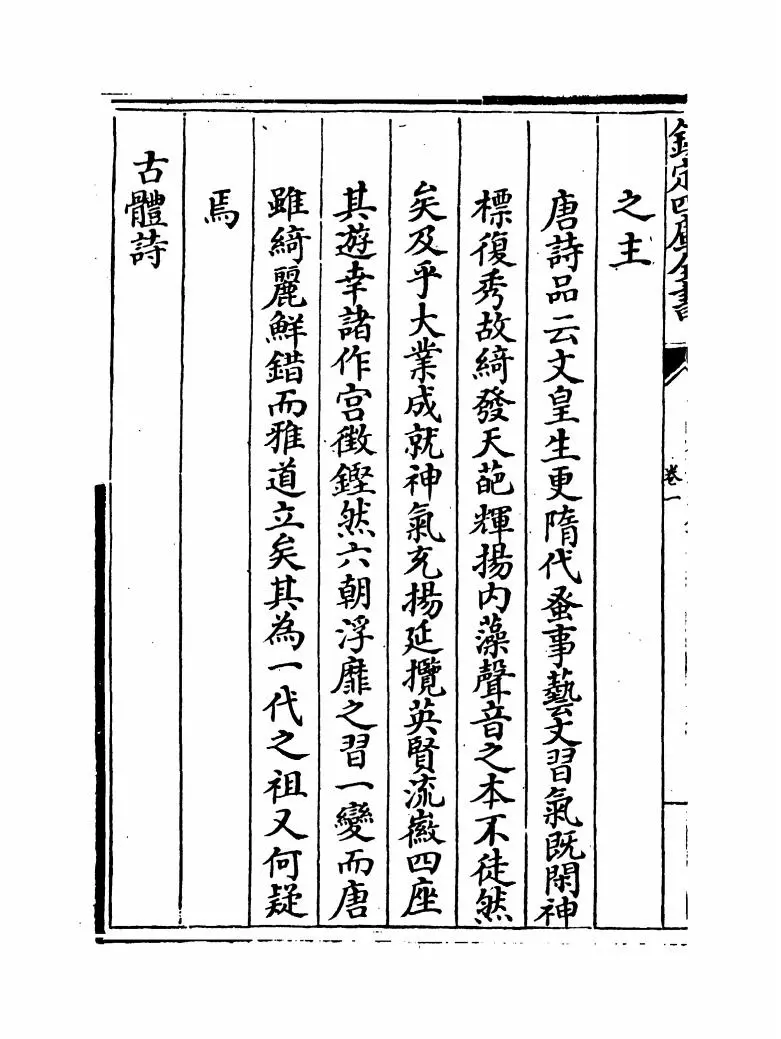 欽定四庫全書
卷一
之主
唐詩品云文皇生更隋代蚤事藝文習氣既閑神
標復秀故綺發天葩輝揚内藻聲音之本不徒然
矣及乎大業成就神氣充揚延攬英賢流徽四座
其遊幸諸作宫徴鏗然六朝浮靡之習一變而唐
雖綺麗鮮錯而雅道立矣其為一代之祖又何疑
焉
古體詩